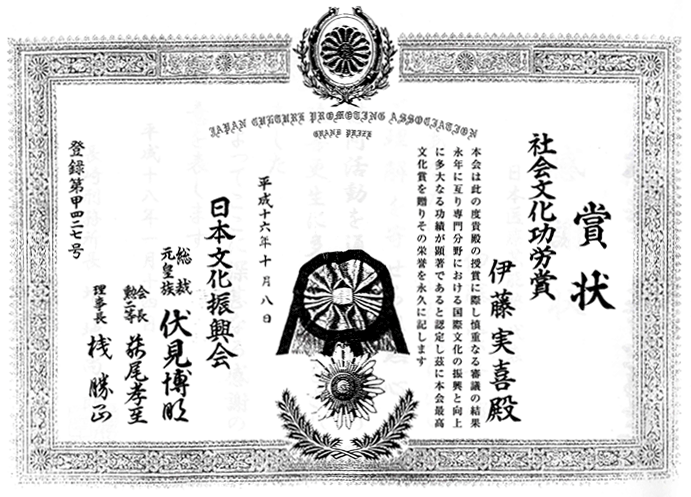 JAPAN CULTURE PROMOTING ASSOCIATION
GRAND PRIZE
賞状
社会文化功労賞
伊藤実喜殿
本会は此の度貴殿の授賞に際し慎重なる審議の結果
永年に亙り専門分野における国際文化の振興と向上
に多大なる功績が顕著であると認定し茲に本会最高
文化賞を贈りその栄誉を永久に記します
平成十六年十月八日
日本文化振興会
総裁
元皇族
伏見博明
会長
勲三等
萩尾孝至
理事長
桟勝正
登録第甲四二七号